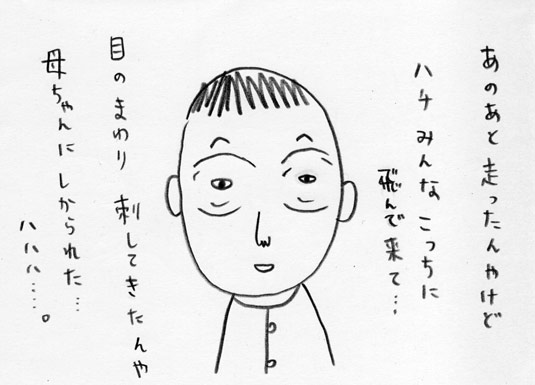 あのあと走ったんやけど
ハチみんなこっちに
飛んで来て…
目のまわり刺してきたんや
母ちゃんにしかられた…
ハハハ……。